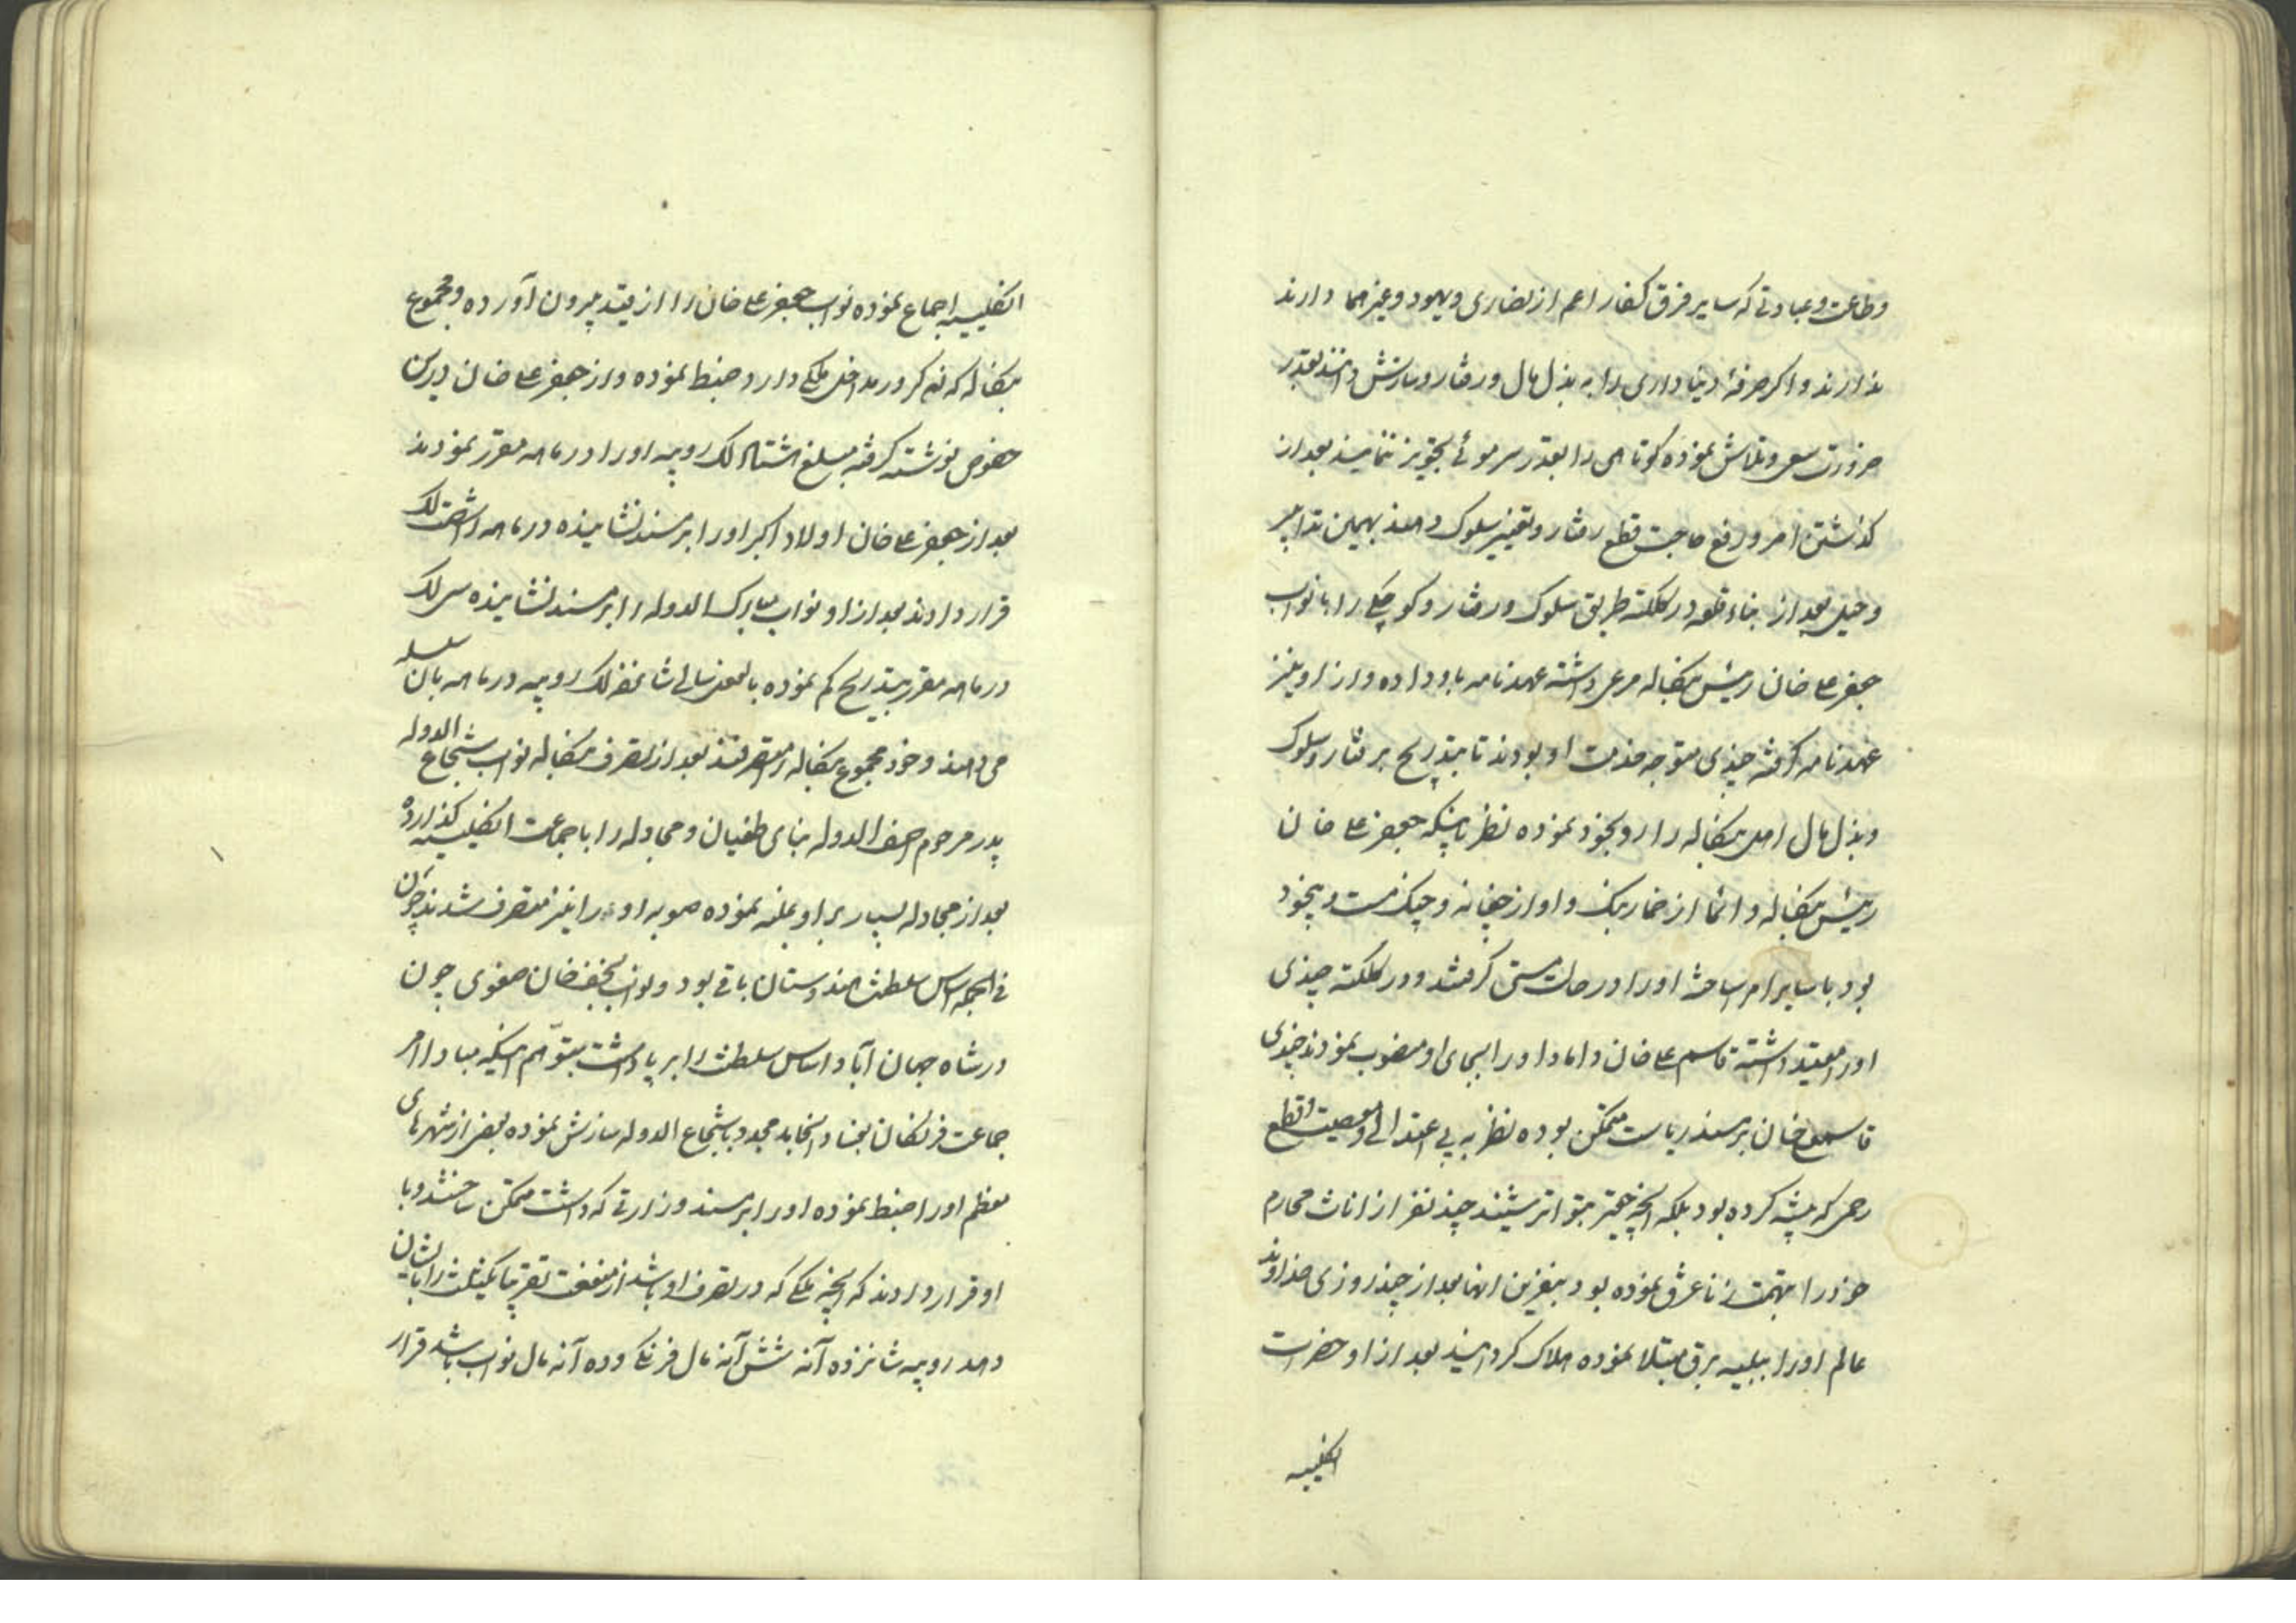 وطاعت و عبادتی که سایر فرق کفار اعم از نصاری و یهود و غیرهما دارند
ندارند و اکر صرفهٔ دنیا داری را به بذل مال و رفتار و سازش دانند بقدر
ضرورت سعی و تلاش نموده کوتاهی را بقدر سر موئی تجویز ننمایند بعد از
کذشتن امر و رفع حاجت قطع رفتار و تغییر سلوک دهند بهمین تدابیر
و حیل بعد از بناء قلعه در کلکته طریق سلوک و رفتار و کوچکی را با نواب
جعفر علی خان رئیس بنکاله مرعی داشته عهدنامه باو داده و از او نیز
عهدنامه کرفته چندی متوجه خدمت او بودند تا بتدریج برفتار و سلوک
و بذل مال اهل بنکاله را رو بخود نموده نظر باینکه جعفر علی خان
رئیس بنکاله دائما از خمار بنک و اواز چغانه و چنک مست و بیخود
بود با سایر امرا ساخته او را در حالت مستی کرفتند و در کلکته چندی
او را مقید داشته قاسم علی خان داماد او را بجای او منصوب نمودند چندی
قاسمعلی خان بر مسند ریاست متمکن بوده نظر به بی اعتدالی و معصیت و قطع
رحمی که پیشه کرده بود بلکه انچه حقیر بتواتر شنیده چند نفر از اناث محارم
خود را بتهمت زنا غرق نموده بود بنفرین انها بعد از چند روزی خداوند
عالم او را ببلیه برق مبتلا نموده هلاک کردانید بعد از او حضرات
انکلیسیه
انکلیسیه اجماع نموده نواب جعفر علی خان را از قید بیرون آورده و مجموع
بنکاله که نه کرور مداخل ملکی دارد ضبط نموده و از جعفر علی خان درین
خصوص نوشته کرفته مبلغ هشتاد لک روپیه او را در ماهه مقرر نمودند
بعد از جعفر علی خان اولاد اکبر او را بر مسند نشانیده در ماهه او شصت لک
قرار دادند بعد از او نواب مبارک الدوله را بر مسند نشانیده سی لک
در ماهه مقرر بتدریج کم نموده بالفعل سالی شانزده لک روپیه در ماهه بان سلسله
می دهند و خود مجموع بنکاله را متصرفند بعد از تصرف بنکاله نواب شجاع الدوله
پدر مرحوم اصف الدوله بنای طغیان و مجادله را با جماعت انکلیسیه کذارده
بعد از مجادله بسیار بر او غلبه نموده صوبه اوده را نیز متصرف شدند چون
فی الجمله اساس سلطنت هندوستان باقی بود و نواب نجف خان صفوی چون
در شاه جهان آباد اساس سلطنت را بر پا داشت بتوهم اینکه مبادا امر
جماعت فرنکان بفساد انجامد مجدد با شجاع الدوله سازش نموده بعضی از شهرهای
معظم او را ضبط نموده او را بر مسند وزارتی که داشت متمکن ساختند و با
او قرار دادند که انچه ملکی که در تصرف او باشد از منفعت تقریبا یکثلث را بایشان
دهد روپیه شانزده آنه شش آنه مال فرنکی و ده آنه مال نواب باشد قرار